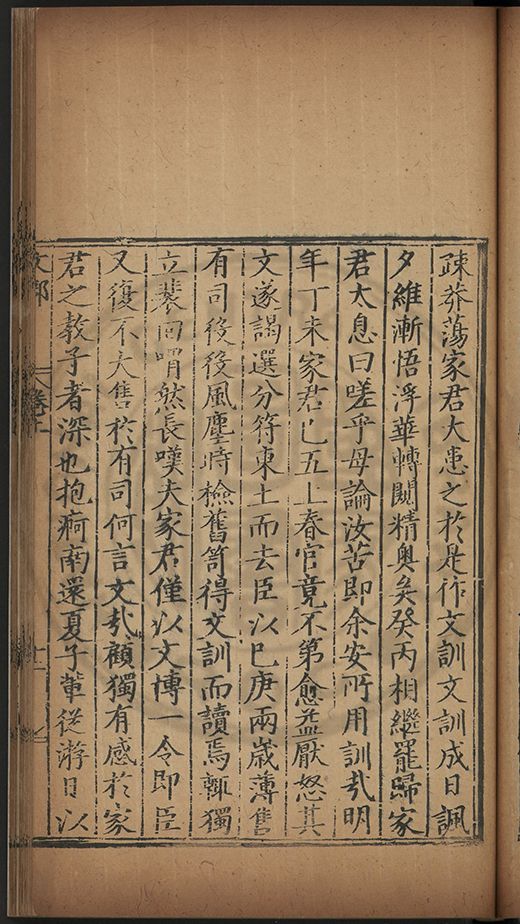 疎莽蕩家君大患之於是作文訓文訓成日諷
夕維漸悟浮華轉闖精奧矣癸丙相繼罷歸家
君太息曰嗟乎毋論汝苦即余安所用訓哉明
年丁未家君已五上春官竟不第愈益厭怒其
文遂謁選分符東土而去臣以己庚兩歲薄售
有司役役風塵時檢舊笥得文訓而讀焉輒獨
立裴回喟然長嘆夫家君僅以文博一令即臣
又復不大售於有司何言文哉顧獨有感於家
君之教子者深也抱痾南還夏子輩從游日以
卷十